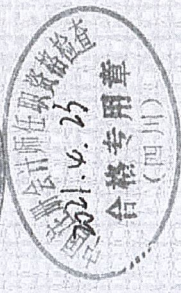 中国注册会计师任职资格检查
2021.4.25
合格专用章
（四川）